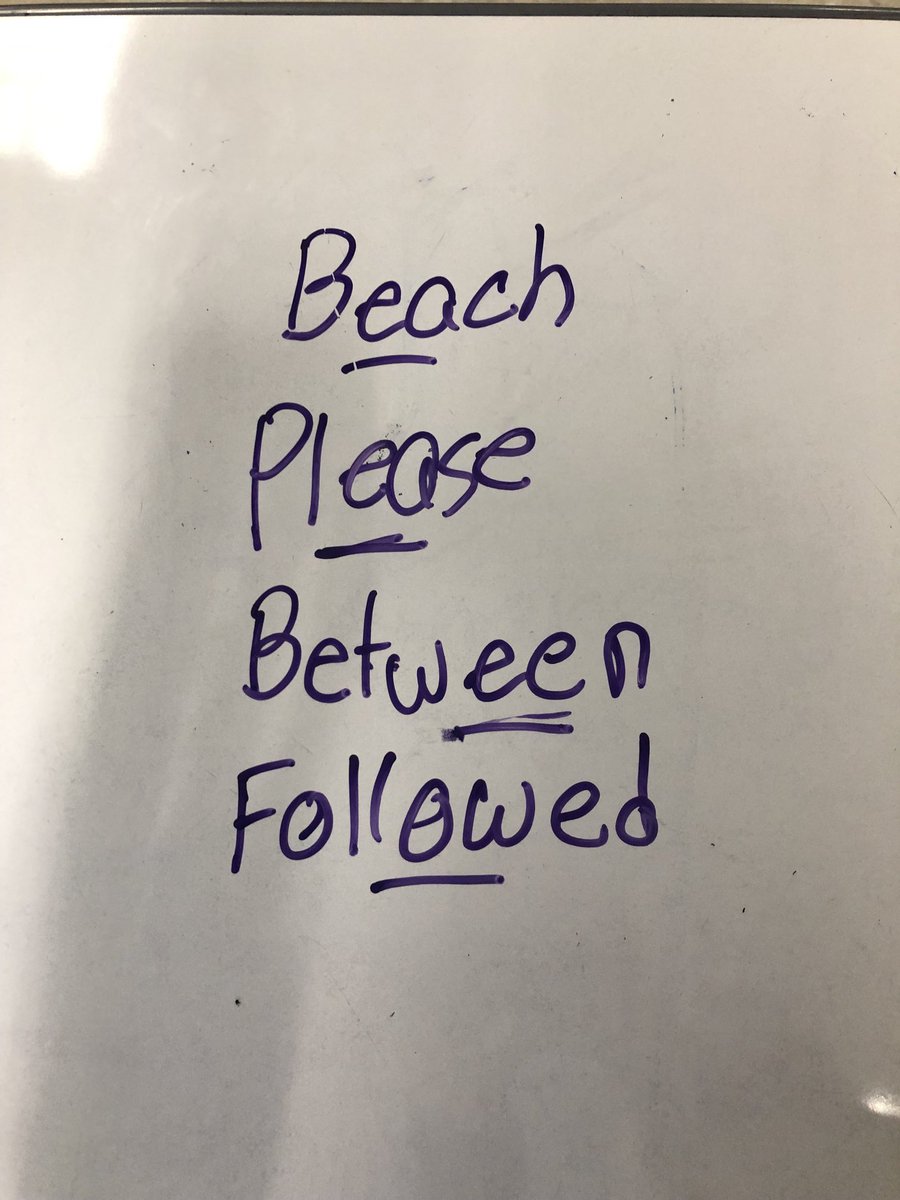 Beach
Please
Between
Followed